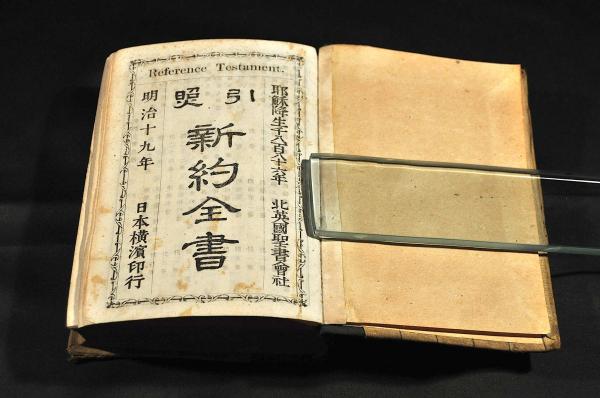 Reference Testament.
耶穌降生千八百八十六年 北英國聖書會社
引照
新約全書
明治十九年 日本橫濱印行